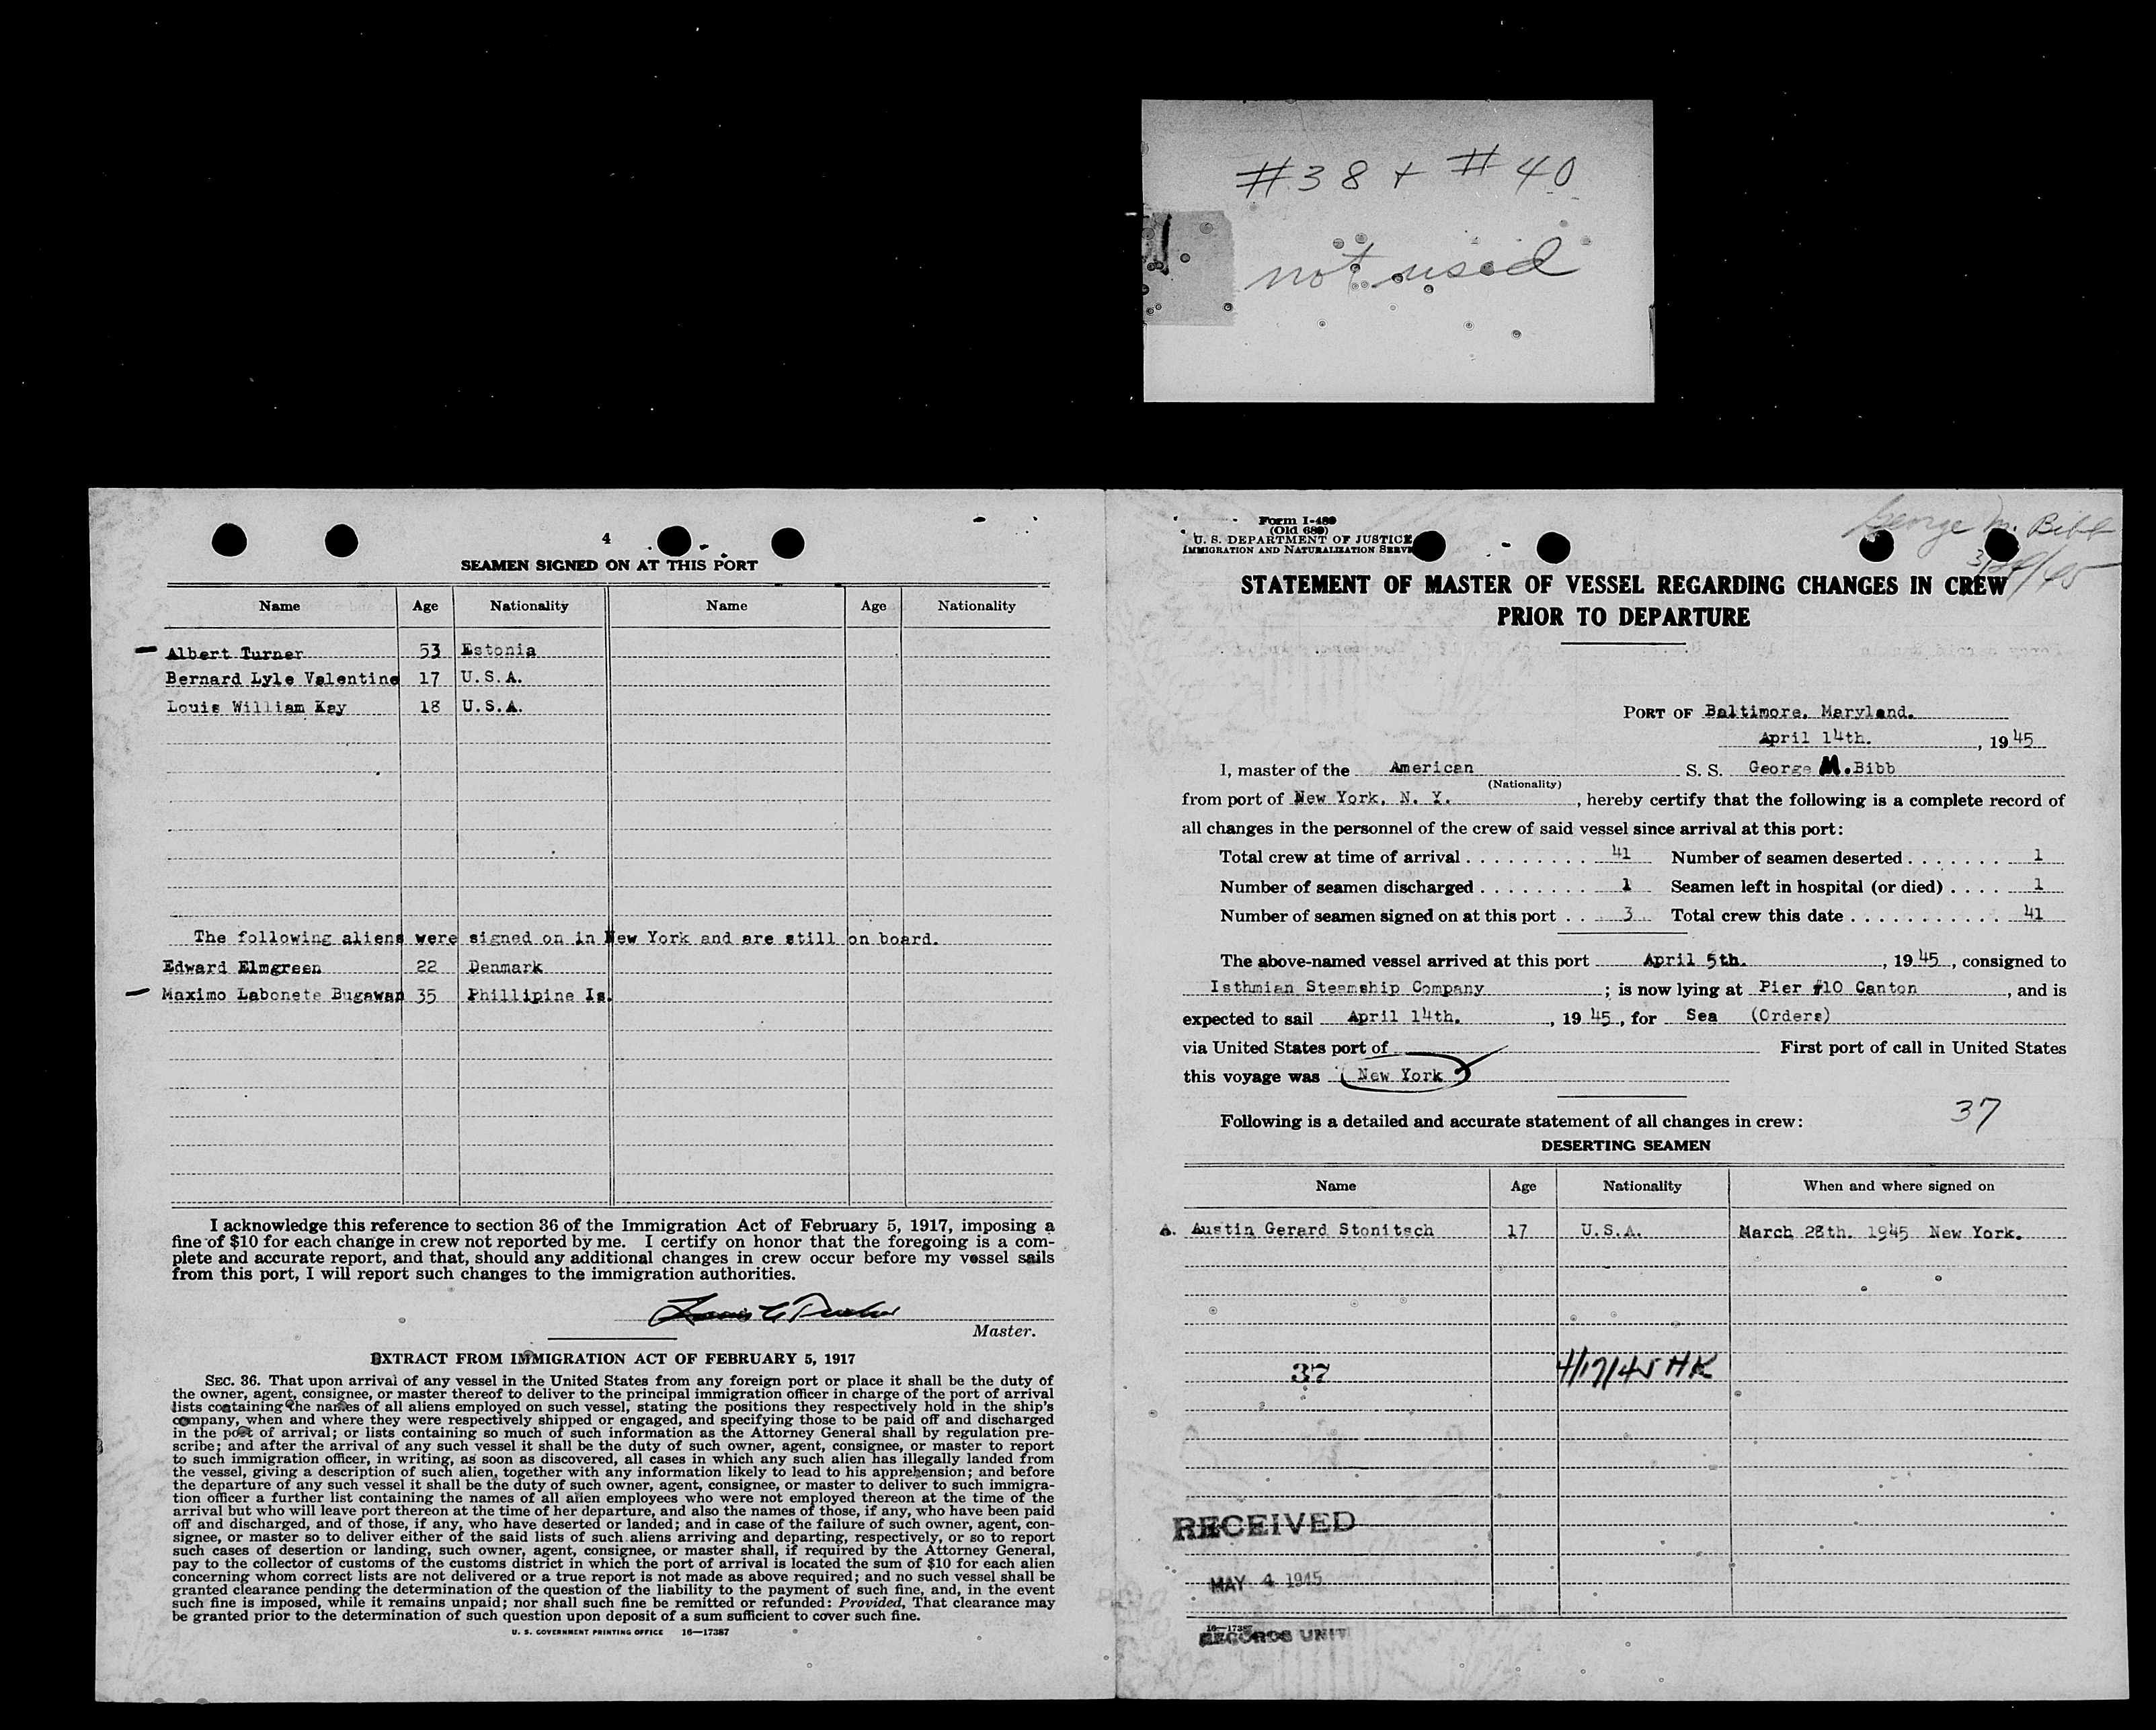 #38 + #40
not used
4
SEAMEN SIGNED ON AT THIS PORT
Name Age Nationality Name Age Nationality
Albert Turner 53 Estonia
Bernard Lyle Valentine 17 U.S.A.
Louis William Kay 18 U.S.A.
The following aliens were signed on in New York and are still on board.
Edward Elmgreen 22 Denmark
Maximo Labonete Bugawan 35 Phillipine Is.
I acknowledge this reference to section 36 of the Immigration Act of February 5, 1917, imposing a
fine of $10 for each change in crew not reported by me. I certify on honor that the foregoing is a com-
plete and accurate report, and that, should any additional changes in crew occur before my vessel sails
from this port, I will report such changes to the immigration authorities.
Master.
EXTRACT FROM IMMIGRATION ACT OF FEBRUARY 5, 1917
SEC. 36. That upon arrival of any vessel in the United States from any foreign port or place it shall be the duty of
the owner, agent, consignee, or master thereof to deliver to the principal immigration officer in charge of the port of arrival
lists containing the names of all aliens employed on such vessel, stating the positions they respectively hold in the ship's
company, when and where they were respectively shipped or engaged, and specifying those to be paid off and discharged
in the port of arrival; or lists containing so much of such information as the Attorney General shall by regulation pre-
scribe; and after the arrival of any such vessel it shall be the duty of such owner, agent, consignee, or master to report
to such immigration officer, in writing, as soon as discovered, all cases in which any such alien has illegally landed from
the vessel, giving a description of such alien, together with any information likely to lead to his apprehension; and before
the departure of any such vessel it shall be the duty of such owner, agent, consignee, or master to deliver to such immigra-
tion officer a further list containing the names of all alien employees who were not employed thereon at the time of the
arrival but who will leave port thereon at the time of her departure, and also the names of those, if any, who have been paid
off and discharged, and of those, if any, who have deserted or landed; and in case of the failure of such owner, agent, con-
signee, or master so to deliver either of the said lists of such aliens arriving and departing, respectively, or so to report
such cases of desertion or landing, such owner, agent, consignee, or master shall, if required by the Attorney General,
pay to the collector of customs of the customs district in which the port of arrival is located the sum of $10 for each alien
concerning whom correct lists are not delivered or a true report is not made as above required; and no such vessel shall be
granted clearance pending the determination of the question of the liability to the payment of such fine, and, in the event
such fine is imposed, while it remains unpaid; nor shall such fine be remitted or refunded: Provided, That clearance may
be granted prior to the determination of such question upon deposit of a sum sufficient to cover such fine.
U. S. GOVERNMENT PRINTING OFFICE 16—17387
Form I-489
(Old 689)
U. S. DEPARTMENT OF JUSTICE
IMMIGRATION AND NATURALIZATION SERVICE
George M. Bibb
STATEMENT OF MASTER OF VESSEL REGARDING CHANGES IN CREW
PRIOR TO DEPARTURE
PORT OF Baltimore, Maryland.
April 14th. , 1945
I, master of the American S. S. George M. Bibb
(Nationality)
from port of New York, N. Y. , hereby certify that the following is a complete record of
all changes in the personnel of the crew of said vessel since arrival at this port:
Total crew at time of arrival . . . . . . . . . 41 Number of seamen deserted . . . . . . . 1
Number of seamen discharged . . . . . . . . 1 Seamen left in hospital (or died) . . . . 1
Number of seamen signed on at this port . . 3 Total crew this date . . . . . . . . . . . 41
The above-named vessel arrived at this port April 5th. , 1945 , consigned to
Isthmian Steamship Company ; is now lying at Pier #10 Canton , and is
expected to sail April 14th. , 1945 , for Sea (Orders)
via United States port of First port of call in United States
this voyage was New York
37
Following is a detailed and accurate statement of all changes in crew:
DESERTING SEAMEN
Name Age Nationality When and where signed on
A. Austin Gerard Stonitsch 17 U.S.A. March 28th. 1945 New York.
37 4/17/45 HK
RECEIVED
MAY 4 1945
16—17387
RECORDS UNIT